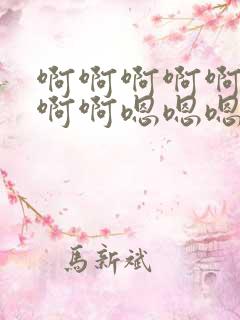 啊啊啊啊啊
啊啊嗯嗯嗯
馬新斌